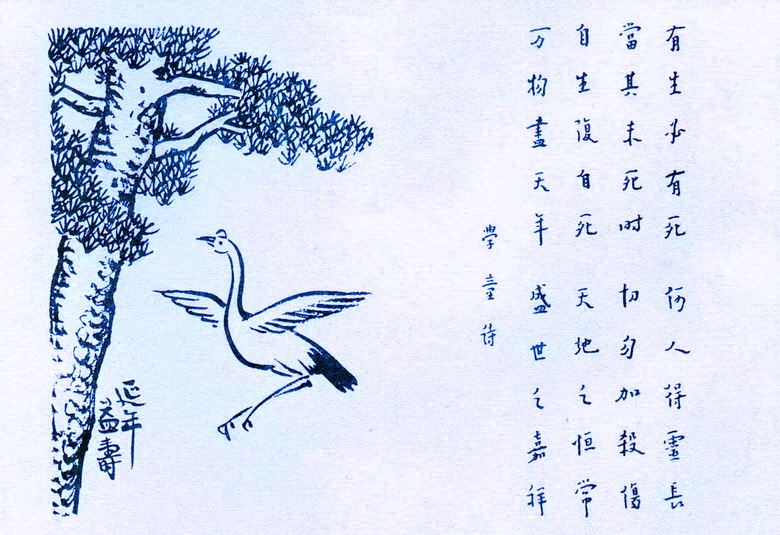 有生必有死 何人得霊長
當其未死时 切勿加殺傷
自生復自死 天地之恒常
万物盡天年 盛世之嘉祥
學童詩
延年
益壽